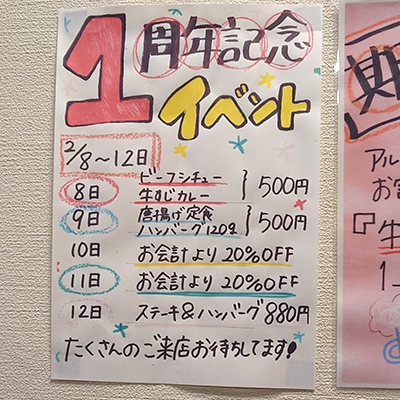 1周年記念
イベント
2/8〜12日
8日 ビーフシチュー
牛すじカレー } 500円
9日 唐揚げ定食
ハンバーグ120g } 500円
10日 お会計より20%OFF
11日 お会計より20%OFF
12日 ステーキ&ハンバーグ880円
たくさんのご来店お待ちしてます!
アル
お会
『牛